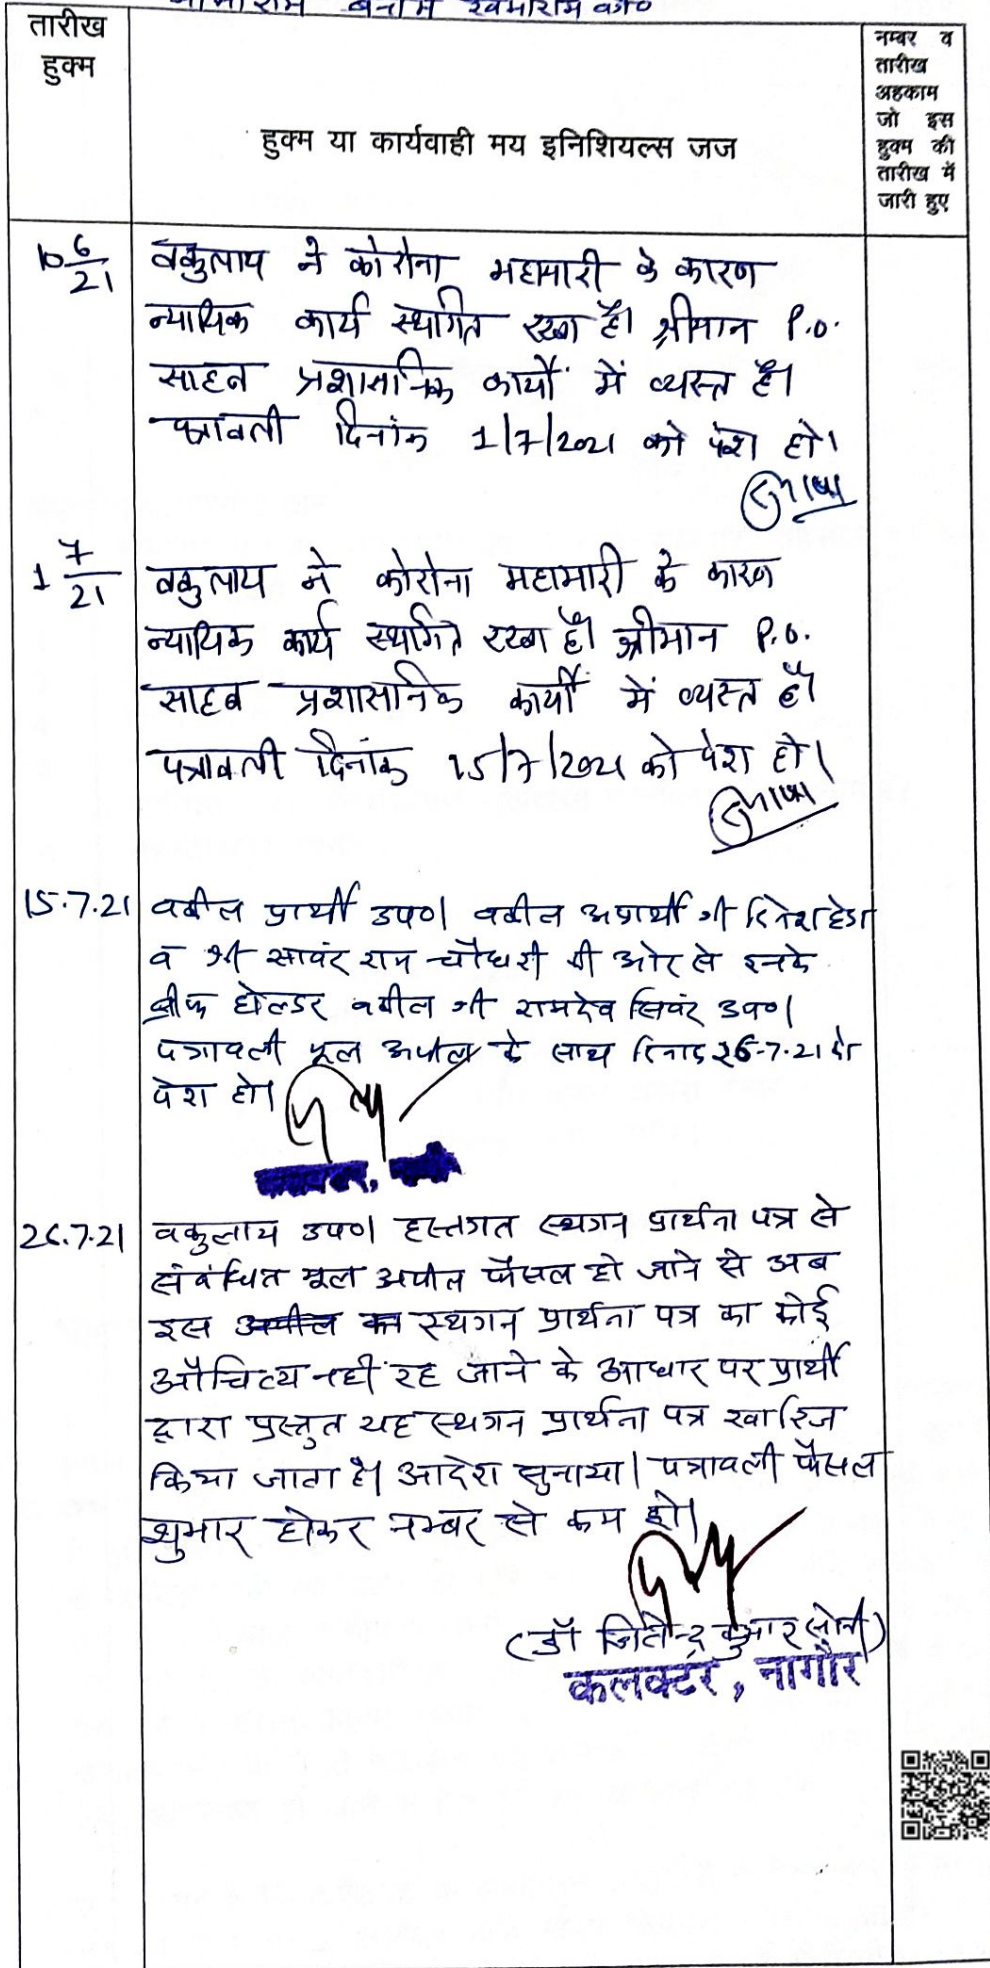 बनाम
तारीख
हुक्म
हुक्म या कार्यवाही मय इनिशियल्स जज
नम्बर व
तारीख
अहकाम
जो इस
हुक्म की
तारीख में
जारी हुए
10 6/21
वकुलाय ने कोरोना महामारी के कारण
न्यायिक कार्य स्थगित रखा है। श्रीमान P.O.
साहब प्रशासनिक कार्यों में व्यस्त है।
पत्रावली दिनांक 1/7/2021 को पेश हो।
1 7/21
वकुलाय ने कोरोना महामारी के कारण
न्यायिक कार्य स्थगित रखा है। श्रीमान P.O.
साहब प्रशासनिक कार्यों में व्यस्त है।
पत्रावली दिनांक 15/7/2021 को पेश हो।
15.7.21
वकील प्रार्थी उप०। वकील अप्रार्थी श्री दिनेश हेडा
व श्री सावंर राम चौधरी की ओर से इनके
ब्रीफ होल्डर वकील श्री रामदेव सिवंर उप०।
पत्रावली मूल अपील के साथ दिनांक 26-7-21 को
पेश हो।
26.7.21
वकुलाय उप०। हस्तगत स्थगन प्रार्थना पत्र से
संबंधित मूल अपील फैसल हो जाने से अब
इस अपील का स्थगन प्रार्थना पत्र का कोई
औचित्य नहीं रह जाने के आधार पर प्रार्थी
द्वारा प्रस्तुत यह स्थगन प्रार्थना पत्र खारिज
किया जाता है। आदेश सुनाया। पत्रावली फैसल
शुमार होकर नम्बर से कम हो।
(डॉ जितेन्द्र कुमार सोनी)
कलक्टर, नागौर